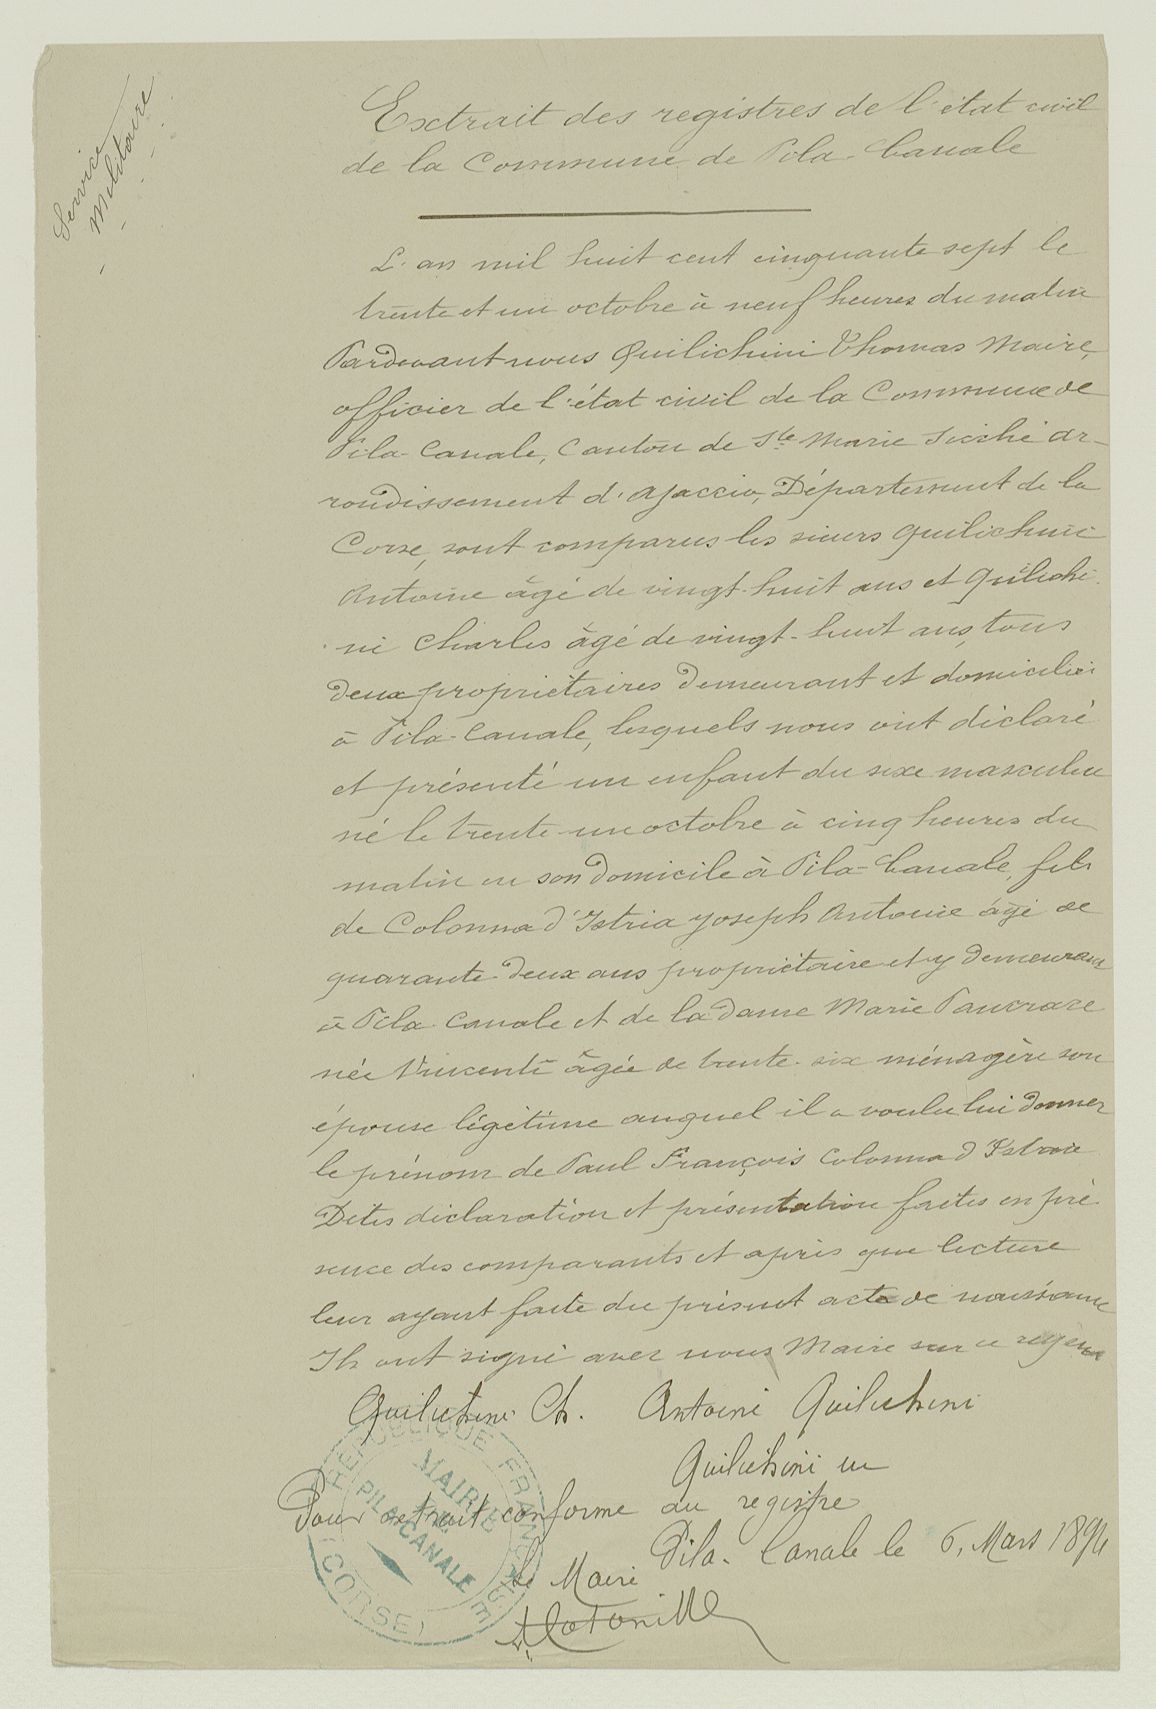 Service
Militaire
Extrait des registres de l'état civil
de la Commune de Pila-Canale
L'an mil huit cent cinquante sept le
trente et un octobre à neuf heures du matin
Pardevant nous Quilichini Thomas Maire,
officier de l'état civil de la Commune de
Pila-Canale, Canton de Ste Marie Siché ar-
rondissement d'Ajaccio, Département de la
Corse, sont comparus les sieurs Quilichini
Antoine âgé de vingt-huit ans et Quilichi-
ni Charles âgé de vingt-huit ans, tous
deux propriétaires demeurant et domiciliés
à Pila-Canale, lesquels nous ont déclaré
et présenté un enfant du sexe masculin
né le trente un octobre à cinq heures du
matin en son domicile à Pila-Canale, fils
de Colonna d'Istria Joseph Antoine âgé de
quarante-deux ans propriétaire et y demeurant
à Pila-Canale et de la dame Marie Pancrace
née Vincenti âgée de trente-six ménagère son
épouse légitime auquel il a voulu lui donner
le prénom de Paul François Colonna d'Istria
Dites déclaration et présentation faites en pré
sence des comparants et après que lecture
leur ayant faite du présent acte de naissance
Ils ont signé avec nous Maire sur ce
Quilichini Ch. Antoine Quilichini
Quilichini
Pour extrait conforme au registre
Pila-Canale le 6, Mars 1894
Le Maire
RÉPUBLIQUE FRANÇAISE
MAIRIE
DE
PILA-CANALE
(CORSE)